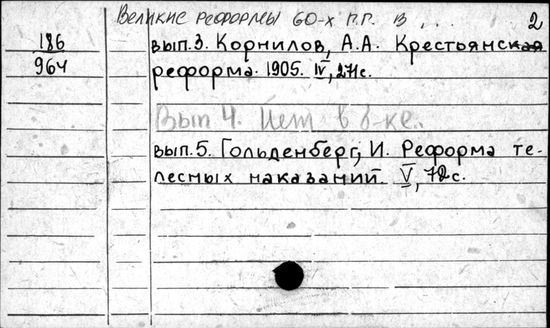 Великие реформы 60-х г.г. в ... 2
186
964
вып.3. Корнилов, А.А. Крестьянская
реформа. 1905. IV, 271с.
Вып 4. Нет в б-ке.
вып.5. Гольденберг, И. Реформа те-
лесных наказаний. V, 72с.